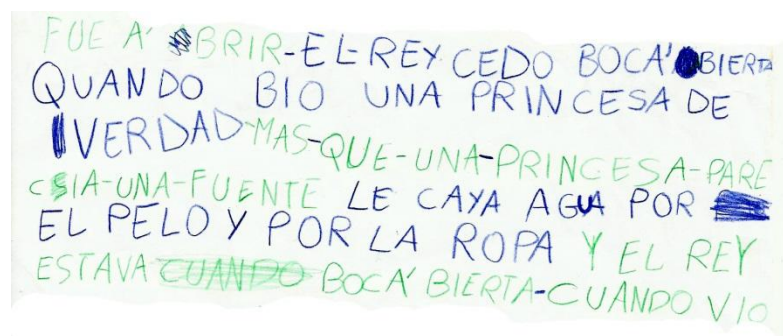 FUE A' BRIR-EL-REY CEDO BOCA' BIERTA
QUANDO BIO UNA PRINCESA DE
VERDAD-MAS-QUE-UNA-PRINCESA-PARE
CSIA-UNA-FUENTE LE CAYA AGUA POR
EL PELO Y POR LA ROPA Y EL REY
ESTAVA CUANDO BOCA' BIERTA-CUANDO VIO